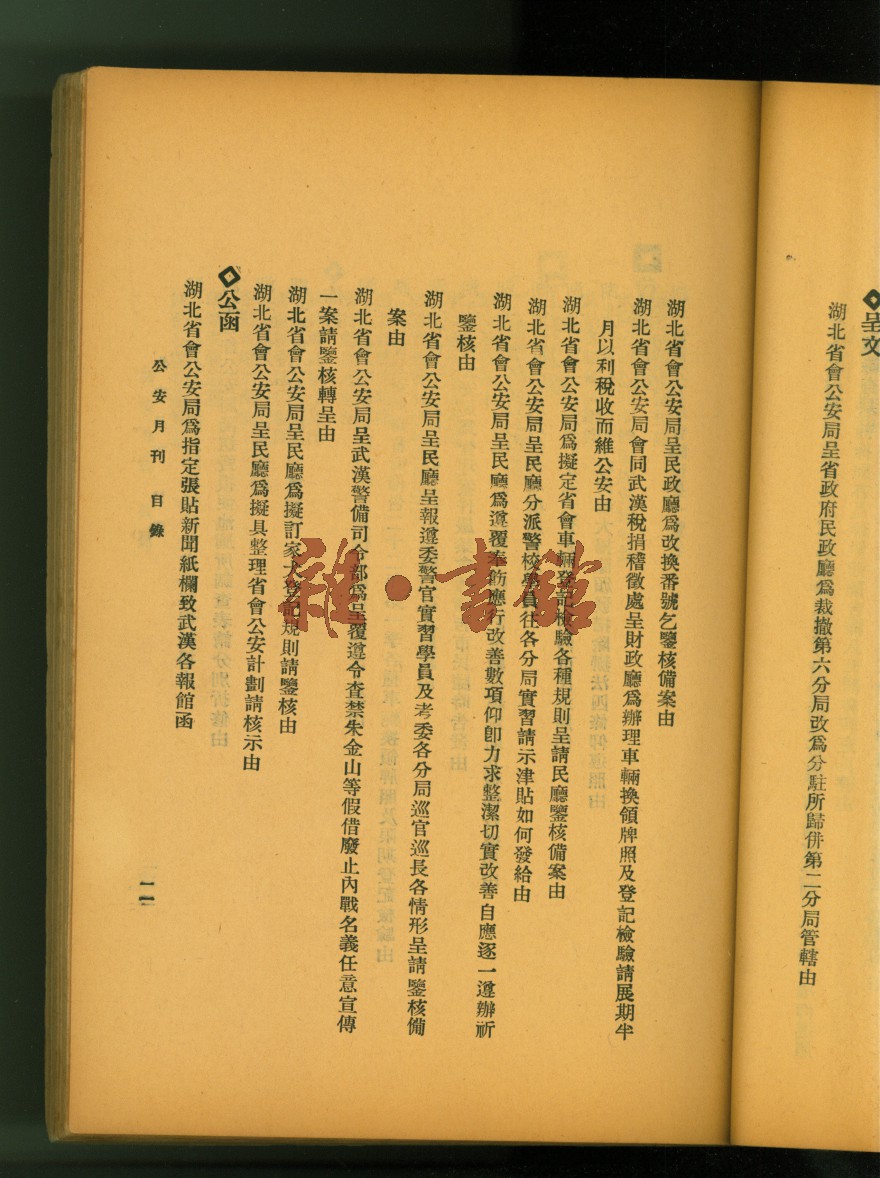 ◇呈文
湖北省會公安局呈省政府民政廳爲裁撤第六分局改爲分駐所歸併第二分局管轄由
湖北省會公安局呈民政廳爲改換番號乞鑒核備案由
湖北省會公安局會同武漢稅捐稽徵處呈財政廳爲辦理車輛換領牌照及登記檢驗請展期半
月以利稅收而維公安由
湖北省會公安局爲擬定省會車輛登記檢驗各種規則呈請民廳鑒核備案由
湖北省會公安局呈民廳分派警校學員往各分局實習請示津貼如何發給由
湖北省會公安局呈民廳爲遵覆奉飭應行改善數項仰卽力求整潔切實改善自應逐一遵辦祈
鑒核由
湖北省會公安局呈民廳呈報遵委警官實習學員及考委各分局巡官巡長各情形呈請鑒核備
案由
湖北省會公安局呈武漢警備司令部爲呈覆遵令查禁朱金山等假借廢止內戰名義任意宣傳
一案請鑒核轉呈由
湖北省會公安局呈民廳爲擬訂家犬登記規則請鑒核由
湖北省會公安局呈民廳爲擬具整理省會公安計劃請核示由
◇公函
湖北省會公安局爲指定張貼新聞紙欄致武漢各報館函
公安月刊 目錄
雜·書館